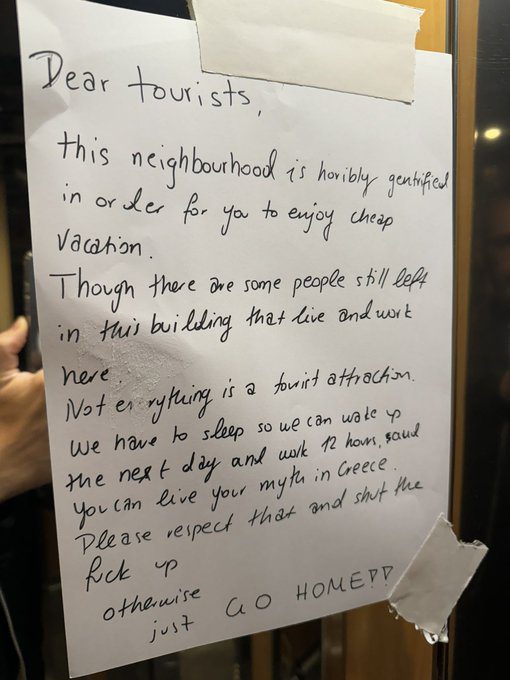 Dear tourists,
this neighbourhood is horibly gentrified
in order for you to enjoy cheap
vacation.
Though there are some people still left
in this building that live and work
here.
Not everything is a tourist attraction.
We have to sleep so we can wake up
the next day and work 12 hours, so
you can live your myth in Greece.
Please respect that and shut the
fuck up
otherwise
just GO HOME!!